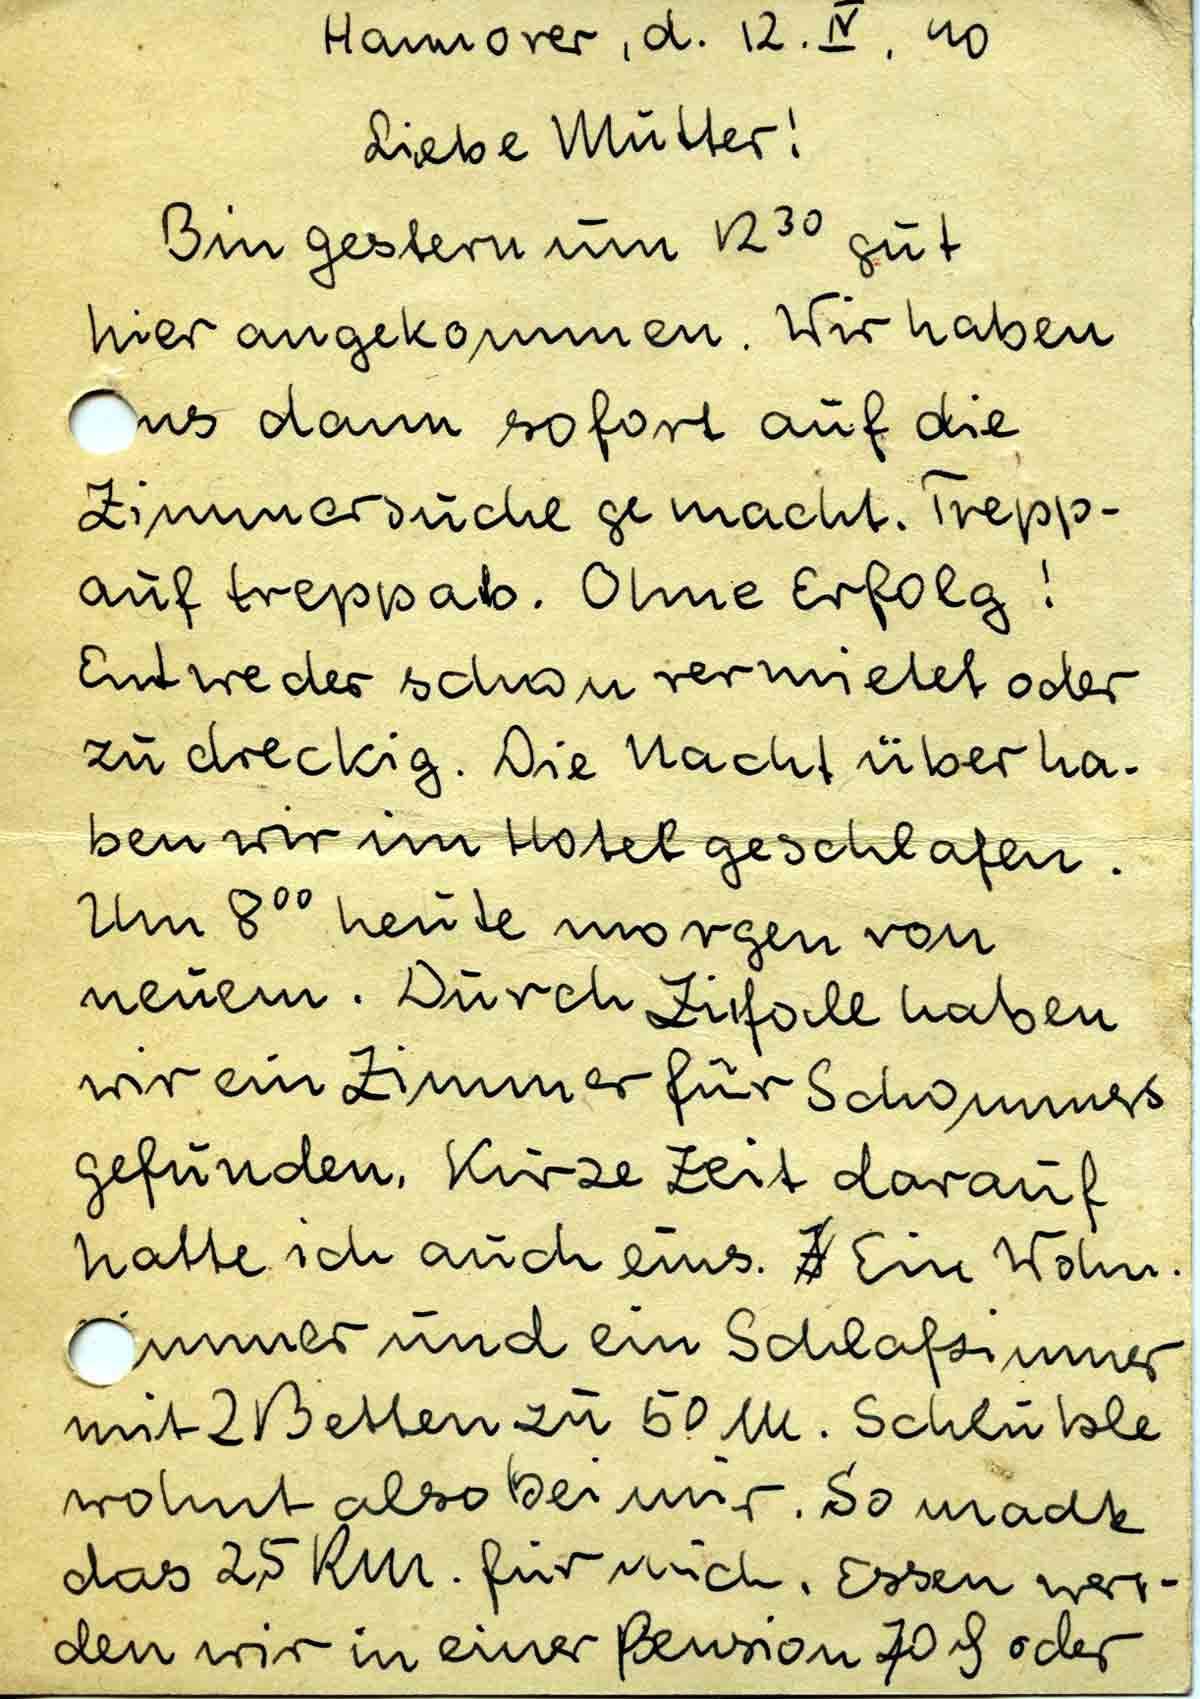 Hannover, d. 12. IV. 40
Liebe Mutter!
Bin gestern um 12³⁰ gut
hier angekommen. Wir haben
uns dann sofort auf die
Zimmersuche gemacht. Trepp-
auf treppab. Ohne Erfolg!
Entweder schon vermietet oder
zu dreckig. Die Nacht über ha-
ben wir im Hotel geschlafen.
Um 8⁰⁰ heute morgen von
neuem. Durch Zufall haben
wir ein Zimmer für Schommers
gefunden. Kurze Zeit darauf
hatte ich auch eins. Ein Wohn-
zimmer und ein Schlafzimmer
mit 2 Betten zu 50 M. 
wohnt also bei mir. So macht
das 25 RM. für mich. Essen wer-
den wir in einer Pension 70 ₰ oder